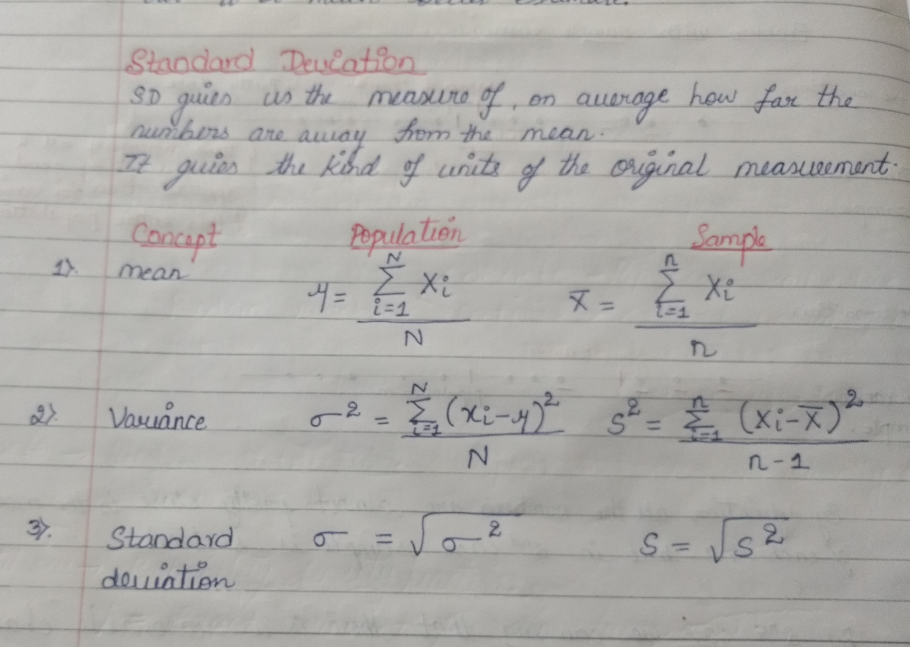 Standard Deviation
SD gives us the measure of, on average how far the
numbers are away from the mean.
It gives the kind of units of the original measurement.
Concept Population Sample
1). mean μ = ∑_{i=1}^{N} Xi / N x̄ = ∑_{i=1}^{n} Xi / n
2). Variance σ² = ∑_{i=1}^{N} (xi-μ)² / N S² = ∑_{i=1}^{n} (xi-x̄)² / n-1
3). Standard σ = √σ² S = √S²
deviation